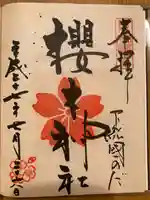 奉拝
下総國のだ
櫻木神社
平成二十七年七月二十六日